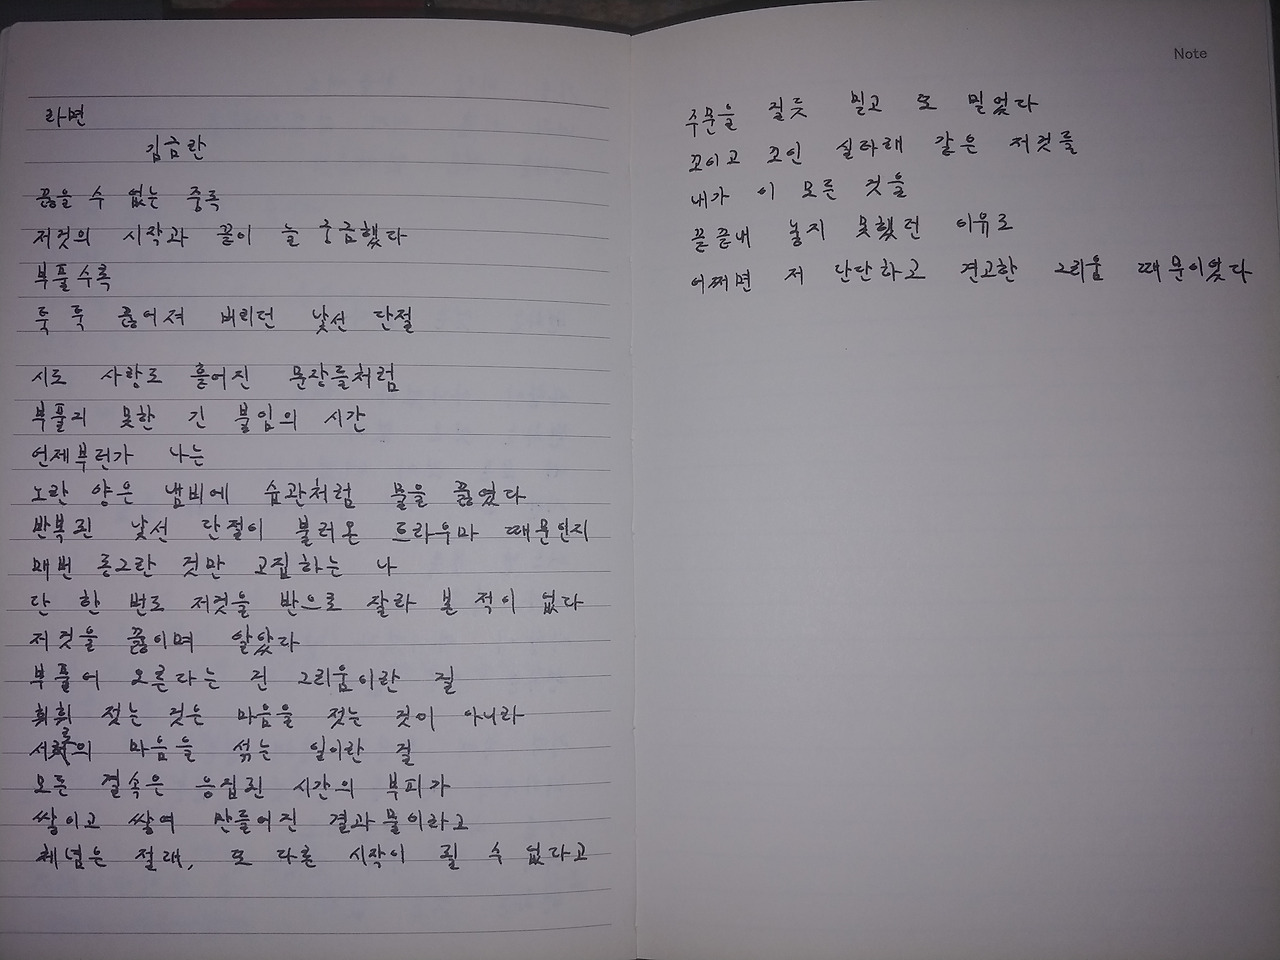 라면
김금란
끊을 수 없는 중독
저것의 시작과 끝이 늘 궁금했다
부풀수록
툭 툭 끊어져 버리던 낯선 단절
시도 사랑도 흩어진 문장들처럼
부풀지 못한 긴 불임의 시간
언제부턴가 나는
노란 양은 냄비에 습관처럼 물을 끓였다
반복된 낯선 단절이 불러온 트라우마 때문인지
매번 동그란 것만 고집하는 나
단 한 번도 저것을 반으로 잘라 본 적이 없다
저것을 끓이며 알았다
부풀어 오른다는 건 그리움이란 걸
휘휘 젓는 것은 마음을 젓는 것이 아니라
서로의 마음을 섞는 일이란 걸
모든 결속은 응집된 시간의 부피가
쌓이고 쌓여 만들어진 결과물이라고
체념은 절대, 또 다른 시작이 될 수 없다고
Note
주문을 걸듯 빌고 또 빌었다
꼬이고 꼬인 실타래 같은 저것를
내가 이 모든 것을
끝끝내 놓지 못했던 이유도
어쩌면 저 단단하고 견고한 그리움 때문이었다